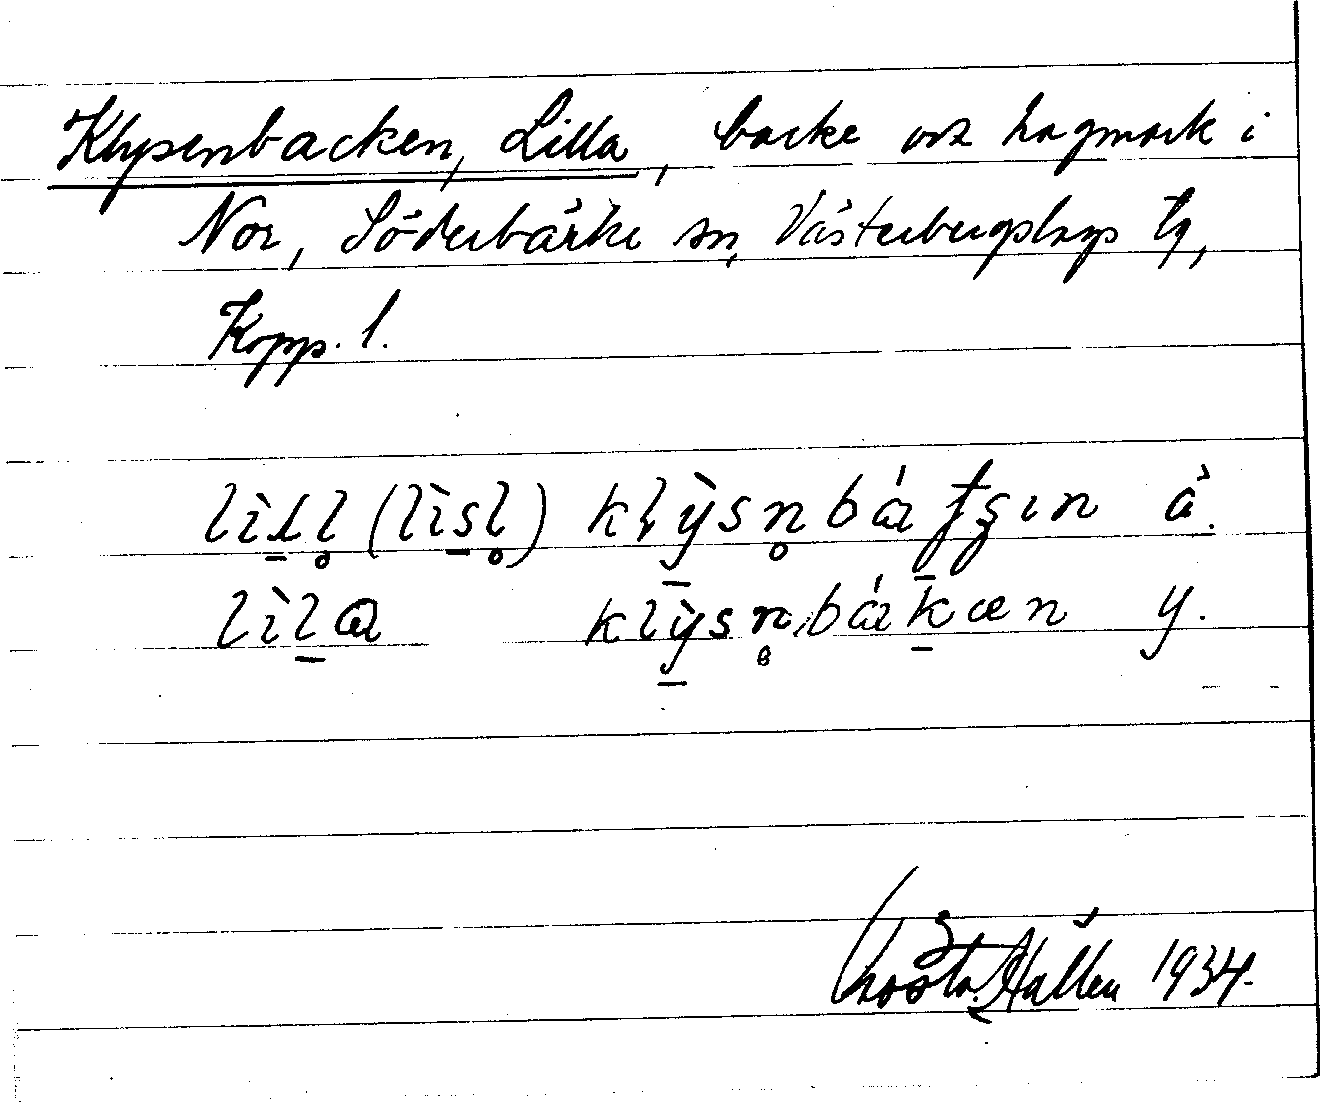 Klysenbacken, Lilla, backe och hagmark i
Nor, Söderbärke sn, Västerbergslags tg,
Kopp. l.
lìl̠l̥ (lìs̠l̥) klỳ̠sn̥bátʂın ä.
lìl̠a klỳ̠sn̥bák̠æn y.
Gösta Hallén 1934.